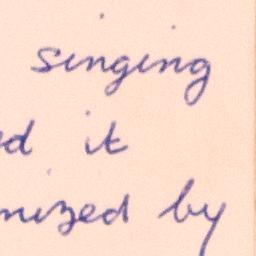 singing
ed it
nized by